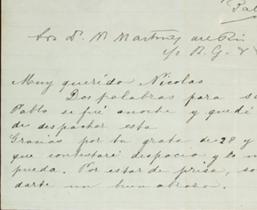 Sr. D. N. Martinez del Rio
c/o R. G. &
Muy querido Nicolas
Dos palabras para
Pablo se fué anoche y quedé
de despachar esta
Gracias por tu grata de 28 y
que contestaré despacio y lo
pueda. Por estar de prisa, so
darte un buen abrazo.